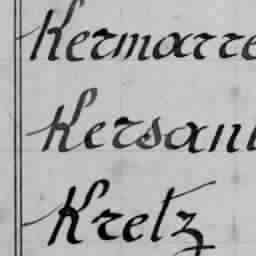 Kermarre
Kersant
Kretz